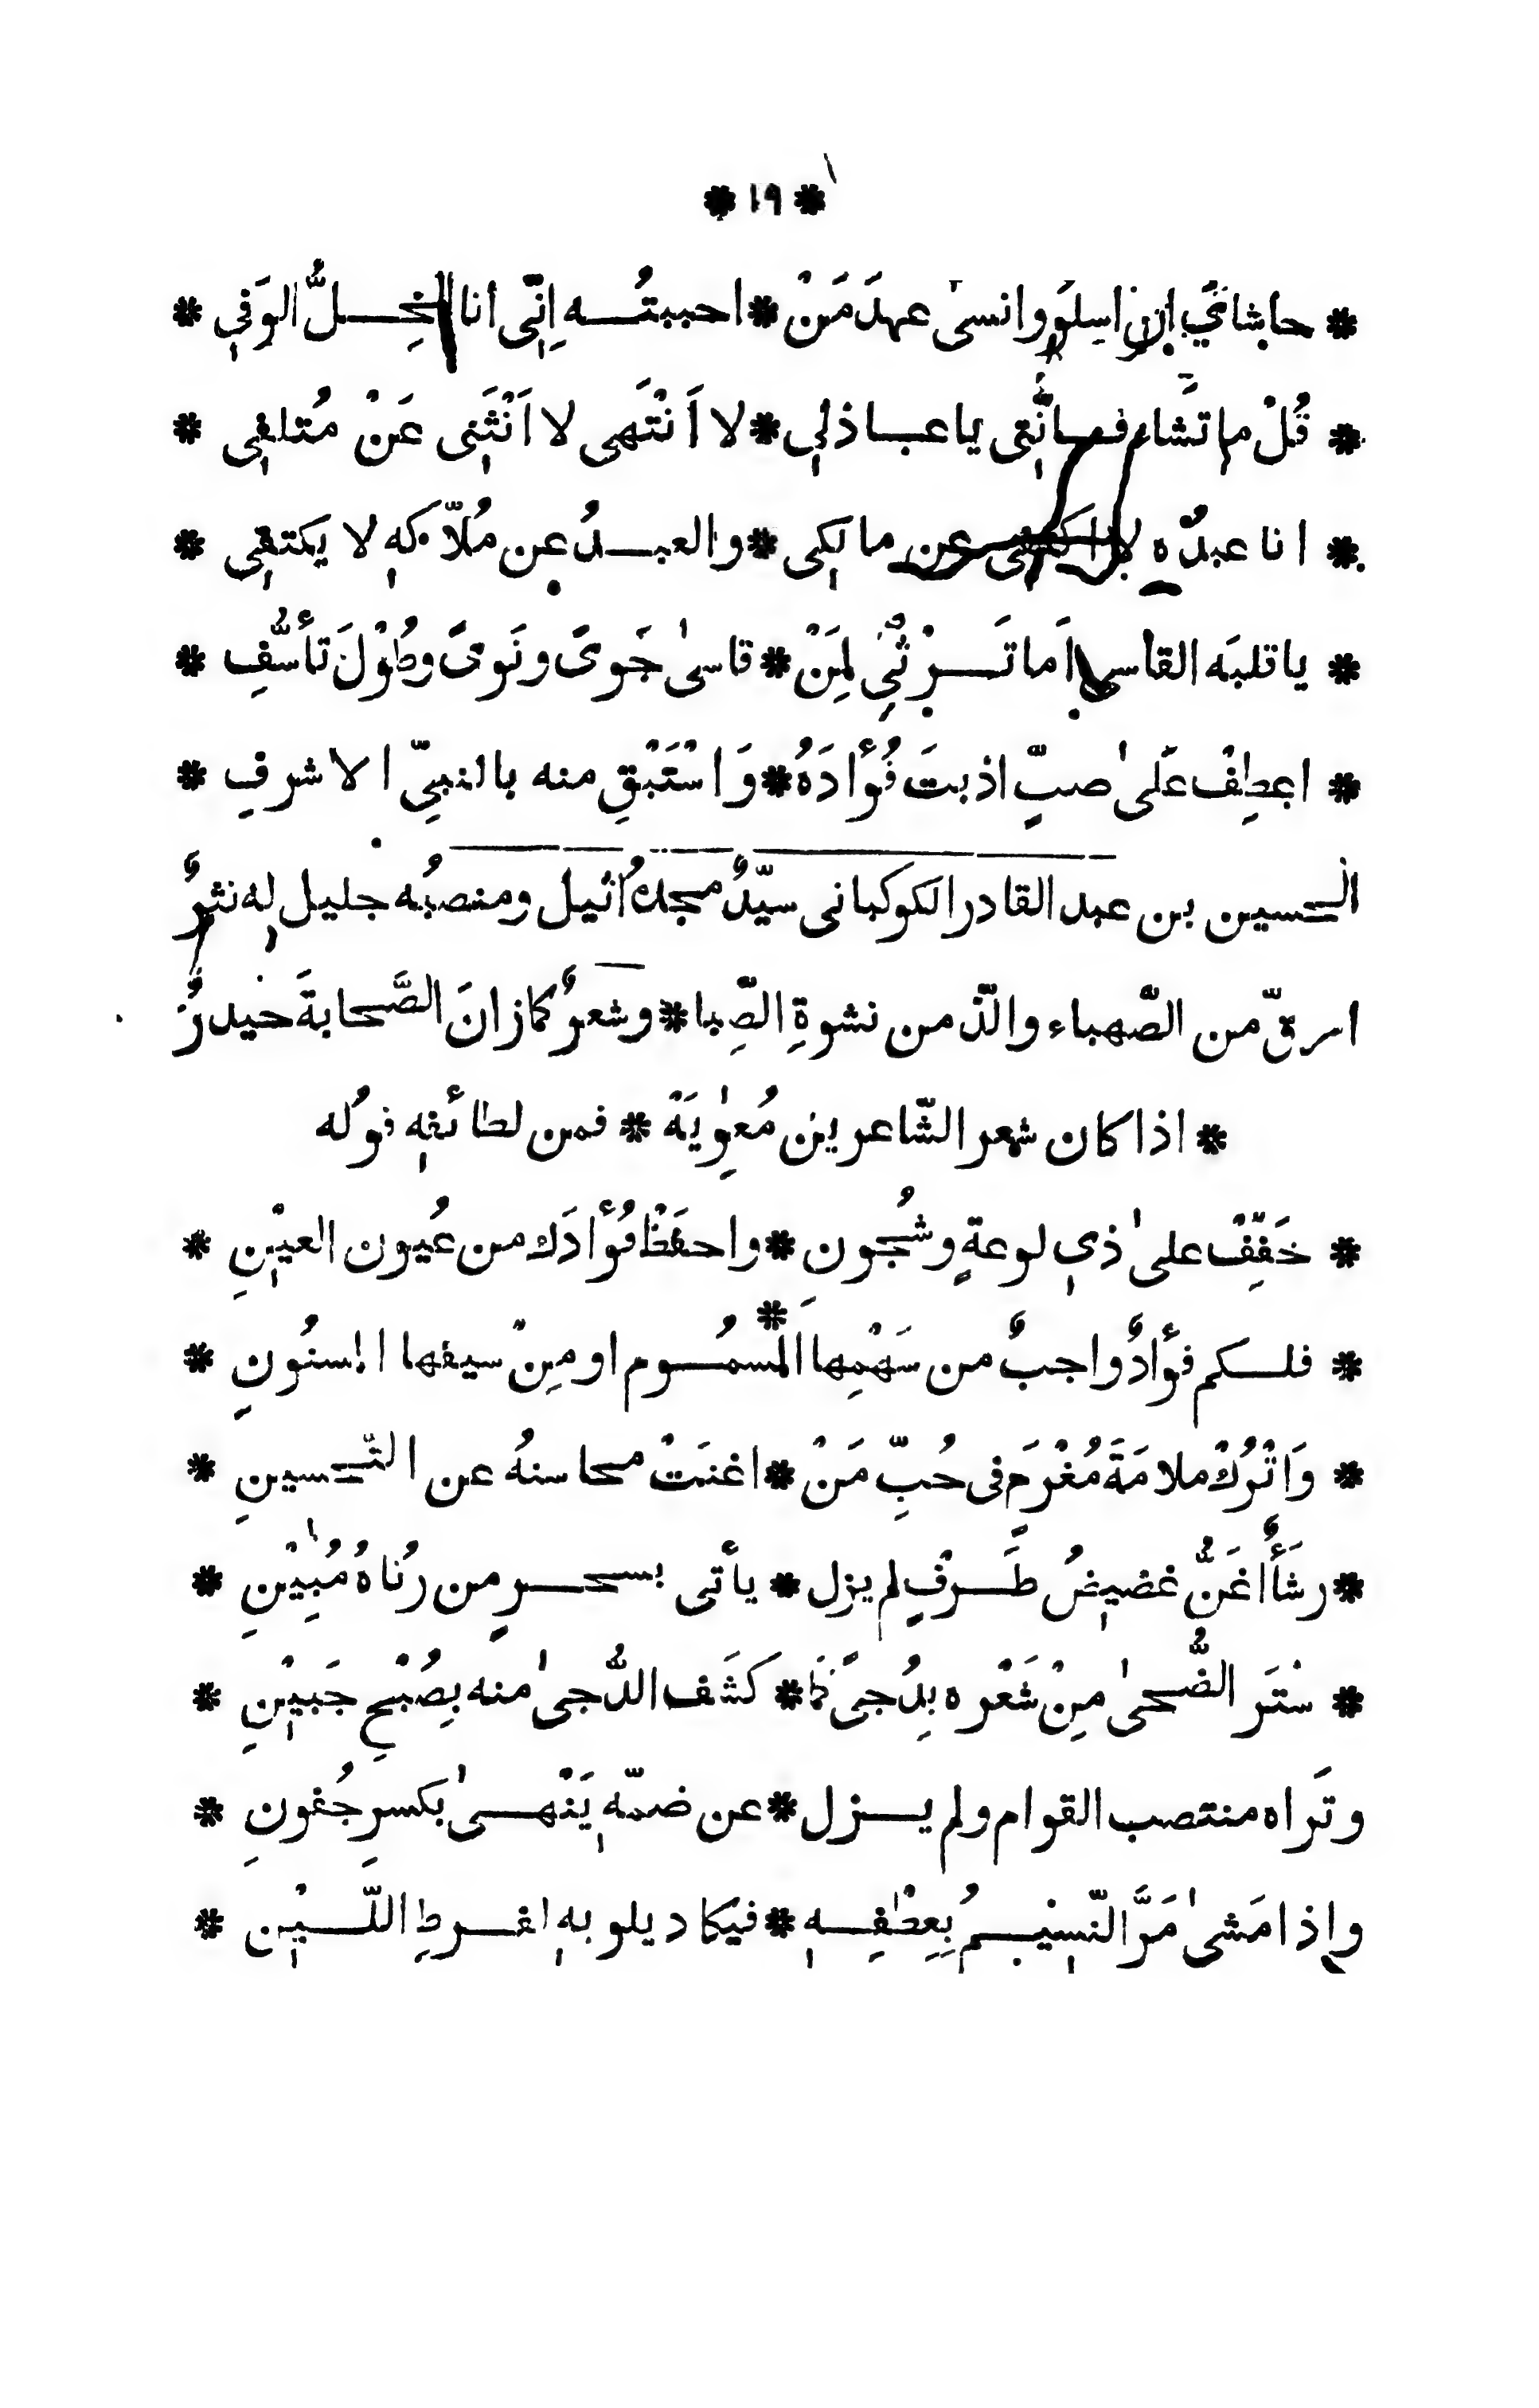 * ١٩ *
* حاشاىَ ان اسلوَ وانسىٰ عهدَ مَنْ * احببتُــه اِنّى انا الخِــلُّ الوَفِى *
* قُلْ ما تَشاء فــانَّنى يا عــاذلى * لا اَنْتَهى لا اَنْثَنى عَنْ مُتلفى *
* انا عبدُه لا اكتفى عن مالكى * والعبــدُ عن مُلّاكهِ لا يكتفى *
* يا قلبَه القاسى اَما تَــرْثِى لِمَنْ * قاسىٰ جَوىً ونَوىً وطُوْلَ تأسُّفِ *
* اعطِفْ عَلىٰ صبٍّ اذبتَ فُؤادَهُ * وَاسْتَبْقِ منه بالنبىّ الاشرفِ *
الحسين بن عبد القادر الكوكبانى سيّدٌ مجدُه اثيل ومنصبُه جليل له نثرٌ
ارقّ من الصّهباء والّذ من نشوةِ الصِّبا * وشعرٌ كما زانَ الصَّحابةَ حيدرٌ
* اذا كان شعر الشّاعرين مُعوٰيَة * فمن لطائفهِ قولُه
* خَفِّفْ علىٰ ذى لوعةٍ وشُجونِ * واحفَظْ فُؤادَك من عُيون العيْنِ *
* فلــكم فؤادٌ واجبٌ من سَهْمِها * المسمُــومِ او مِنْ سيفها المسنُونِ *
* وَاتْرُكْ ملامَةَ مُغْرَمٍ فى حُبِّ مَنْ * اغنَتْ محاسنهُ عن التّحسينِ *
* رشَأٌ اغَنُّ غضيضُ طَــرْفٍ لم يزل * يأتى بسحــرٍ من رُناهُ مُبِيْنِ *
* سْتَر الضُّحىٰ مِنْ شَعْره بِدُجىً كَما * كَشَف الدُّجىٰ منه بِصُبْحِ جَبيْنِ *
وتَراه منتصب القوام ولم يــزل * عن ضمّهِ يَنْهــىٰ بكسرِ جُفونِ *
واذا مَشىٰ مَرَّ النّسِيْــمُ بِعِطْفِــهِ * فيكاد يلوبهِ لفــرطِ اللّــيْن *